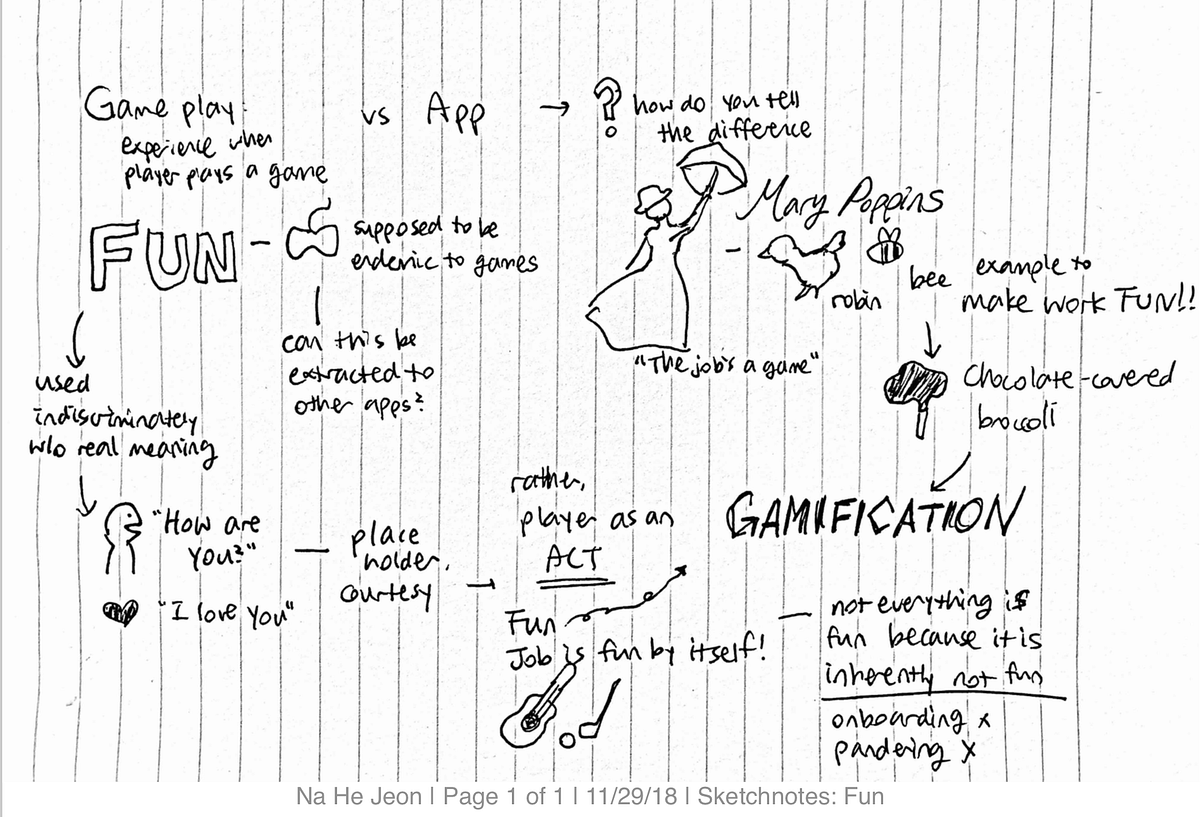 Game play:
experience when
player plays a game
vs App →
? how do you tell
the difference
FUN -
supposed to be
endemic to games
can this be
extracted to
other apps?
Mary Poppins
-
robin
bee
example to
make work FUN!!
"The job's a game"
Chocolate-covered
broccoli
GAMIFICATION
used
indiscriminately
w/o real meaning
"How are
you?"
"I love you"
—
place
holder,
courtesy
→
rather,
player as an
ACT
Fun
Job is fun by itself!
— not everything is
fun because it is
inherently not fun
onboarding x
pandering x
Na He Jeon | Page 1 of 1 | 11/29/18 | Sketchnotes: Fun